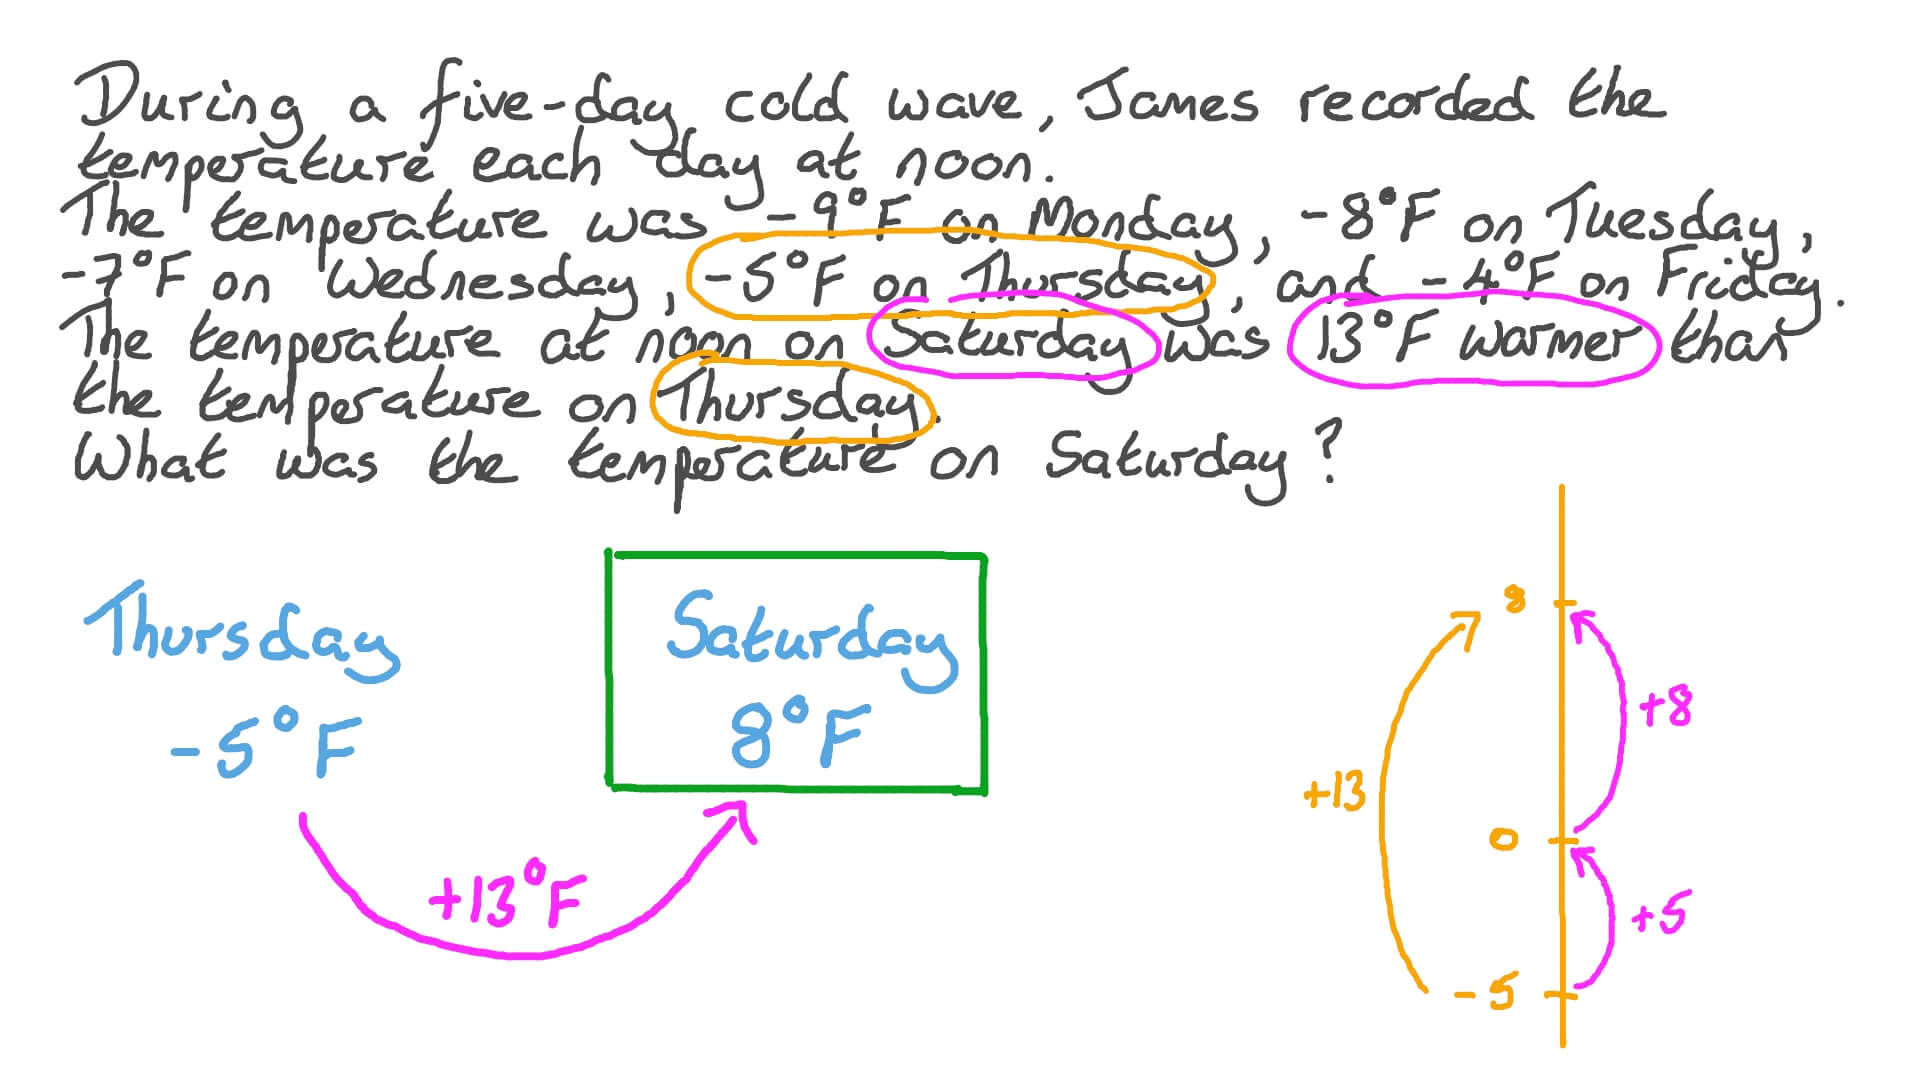 During a five-day cold wave, James recorded the
temperature each day at noon.
The temperature was -9°F on Monday, -8°F on Tuesday,
-7°F on Wednesday, -5°F on Thursday, and -4°F on Friday.
The temperature at noon on Saturday was 13°F warmer than
the temperature on Thursday.
What was the temperature on Saturday?
Thursday
-5°F
Saturday
8°F
+13°F
8
+8
+13
0
+5
-5